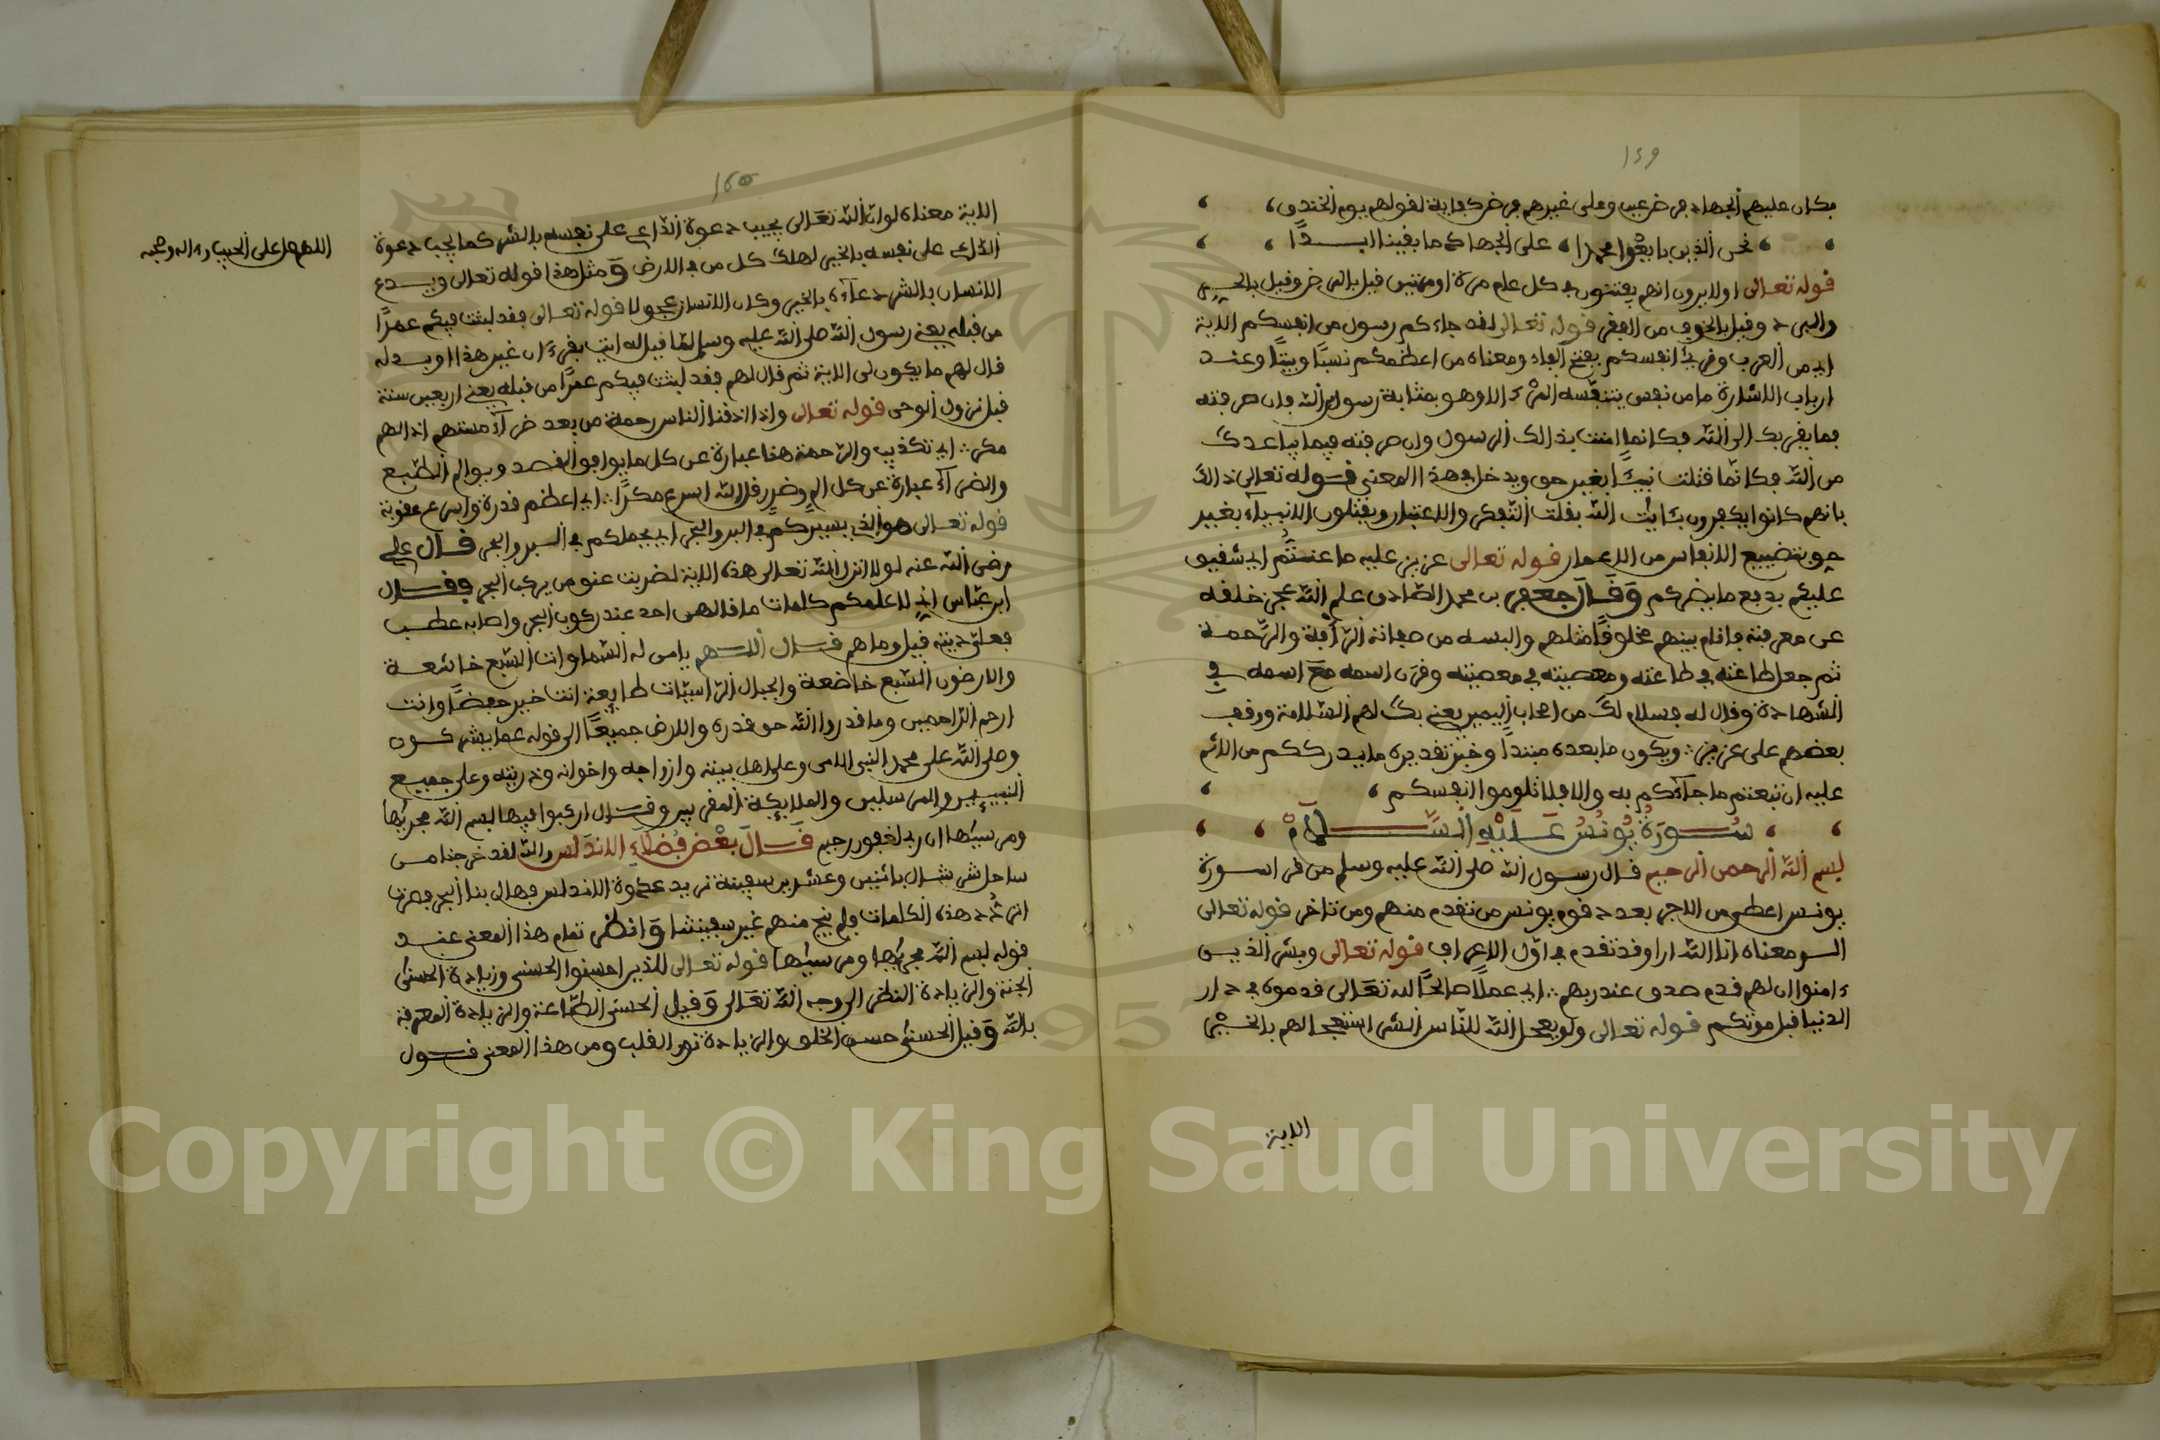 ١٤٩
فكان عليهم الجهاد فرض عين وعلى غيرهم فرض كفاية لقولهم يوم الخندق
نحن الذين بايعوا محمدا على الجهاد ما بقينا ابدًا
قوله تعالى اولا يرون انهم يفتنون في كل عام مرة او مرتين قيل بالمرض وقيل بالحر
والبرد وقيل بالخوف من الفقر قوله تعالى لقد جاءكم رسول من انفسكم الاية
اي من العرب وقرئ انفسكم بفتح الفاء ومعناه من اعظمكم نسبًا وبيتًا وعند
ارباب الاشارة ما من نفس يتنفسه المرء الا وهو بمثابة رسول الله فان صرفته
فيما يقربك الى الله فكانما امنت بذالك الرسول وان صرفته فيما يباعدك
من الله فكانما قتلت نبيًا بغير حق ويدخل في هذا المعنى قوله تعالى ذالك
بانهم كانوا يكفرون بئايت الله بقلت التفكر والاعتبار ويقتلون الانبياء بغير
حق بتضييع الانفاس من الاعمار قوله تعالى عزيز عليه ما عنتم اي شفيق
عليكم يدفع ما يضركم وقال جعفر بن محمد الصادق علم الله عجز خلقه
عن معرفته فاقام بينهم مخلوقًا مثلهم والبسه من صفاته الرأفة والرحمة
ثم جعل طاعته في طاعته ومعصيته في معصيته وقرن اسمه مع اسمه في
الشهادة وقال له فسلام لك من اصحاب اليمين يعني بك لهم السلامة ووقف
بعضهم على عزيز ويكون ما بعده مبتدأ وخبر تقديره ما يدرككم من الاثم
عليه ان تبعتم ما جاءكم به والا فلا تلوموا انفسكم
سورة يونس عليه السلام
بسم الله الرحمن الرحيم قال رسول الله صلى الله عليه وسلم من قرا سورة
يونس اعطي من الاجر بعدد قوم يونس من تقدم منهم ومن تاخر قوله تعالى
الر معناه انا الله ارا وقد تقدم في اول الاعراف قوله تعالى وبشر الذين
ءامنوا ان لهم قدم صدق عند ربهم اي عملًا صالحًا لله تعالى قدموه في دار
الدنيا قبل موتكم قوله تعالى ولو يعجل الله للناس الشر استعجالهم بالخير
الاية
١٥٠
الاية معناه لو ان الله تعالى يجيب دعوة الداعي على نفسه بالشر كما يجيب دعوة
على نفسه بالخير لهلك كل من في الارض ومثل هذا قوله تعالى ويدع
الانسان بالشر دعاءه بالخير وكان الانسان عجولا قوله تعالى فقد لبثت فيكم عمرًا
من قبله يعني رسول الله صلى الله عليه وسلم لما قيل له ايت بقرءان غير هذا او بدله
قال لهم ما يكون لي الاية ثم قال لهم فقد لبثت فيكم عمرًا من قبله يعني اربعين سنة
قبل نزول الوحي قوله تعالى واذا اذقنا الناس رحمة من بعد ضراء مستهم اذا لهم
مكر اي تكذيب والرحمة هنا عبارة عن كل ما يوافق القصد ويوالم الطبع
والضراء عبارة عن كل الم وضرر قل الله اسرع مكرًا اي اعظم قدرة واسرع عقوبة
قوله تعالى هو الذي يسيركم في البر والبحر اي يحملكم في البر والبحر قال علي
رضي الله عنه لولا انزل الله تعالى هذه الاية لضربت عنق من يركب البحر وقال
ابن عباس اني لاعلمكم كلمات ما قالهن احد عند ركوب البحر واصابه عطب
فعلي ديته قيل وما هم قال اللهم يا من له السماوات السبع خاشعة
والارضون السبع خاضعة والجبال الراسيات طايعة انت خير حفظًا وانت
ارحم الراحمين وما قدروا الله حق قدره والارض جميعًا الى قوله عما يشركون
وصلى الله على محمد النبي الامي وعلى اهل بيته وازواجه واخوانه وذريته وعلى جميع
النبيين والمرسلين والملايكة المقربين وقال اركبوا فيها بسم الله مجريها
ومرسيها ان ربي لغفور رحيم قال بعض فضلاء الاندلس والله لقد خرجنا من
ساحل في اثنين وعشرين سفينة نريد عدوة الاندلس فهال بنا البحر فصرت
اردد هذه الكلمات ولم ينج منهم غير سفينتنا وانظر تمام هذا المعنى عند
قوله بسم الله مجريها ومرسيها قوله تعالى للذين احسنوا الحسنى وزيادة الحسنى
الجنة والزيادة النظر الى وجه الله تعالى وقيل الحسنى الطاعة والزيادة المعرفة
بالله وقيل الحسنى حسن الخلق والزيادة نور القلب ومن هذا المعنى قول
اللهم صل على الحبيب وءاله وصحبه
Copyright © King Saud University
1957